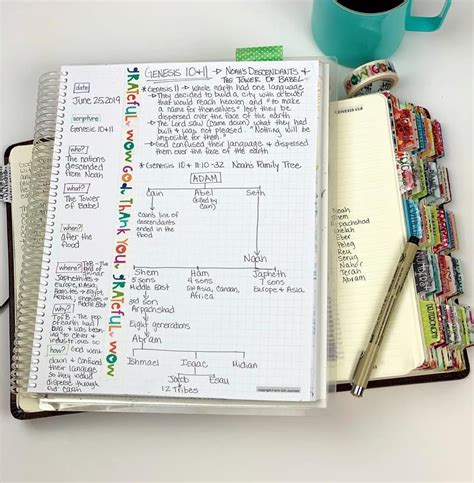 date
June 25, 2019
scripture
Genesis 10+11
who?
The nations
descended
from Noah
what?
The Tower
of Babel
when?
after the
flood
where?
Japhetites →
Europe, N Asia
Hamites →
Arabia,
why?
TofB → The pop
of earth
how?
God went
down & confused
their language
so they would
disperse through
out earth
grateful. WOW God. Thank You. grateful. WOW
GENESIS 10+11 → NOAH'S DESCENDANTS +
THE TOWER OF BABEL
* Genesis 11 → Whole earth had one language
→ They decided to build a city with a tower
that would reach heaven and "to make
a name for themselves" lest they be
dispersed over the face of the earth
→ The Lord saw (came down) what they had
built & was not pleased. "Nothing will be
impossible for them."
→ God confused their language & dispersed
them over the face of the earth
* Genesis 10 + 11:10-32 Noah's Family Tree
ADAM
Cain Abel Seth
(killed by
Cain)
Cain's line of
descendants
ended in the
flood
Noah
Shem Ham Japheth
5 sons 4 sons 7 sons
Middle East SW Asia, Canaan, Europe + Asia
Africa
3rd son
Arpachshad
Eight generations
Abram
Ishmael Isaac Midian
Jacob Esau
12 Tribes
Noah
Shem
Arpachshad
Shelah
Eber
Peleg
Reu
Serug
Nahor
Terah
Abram